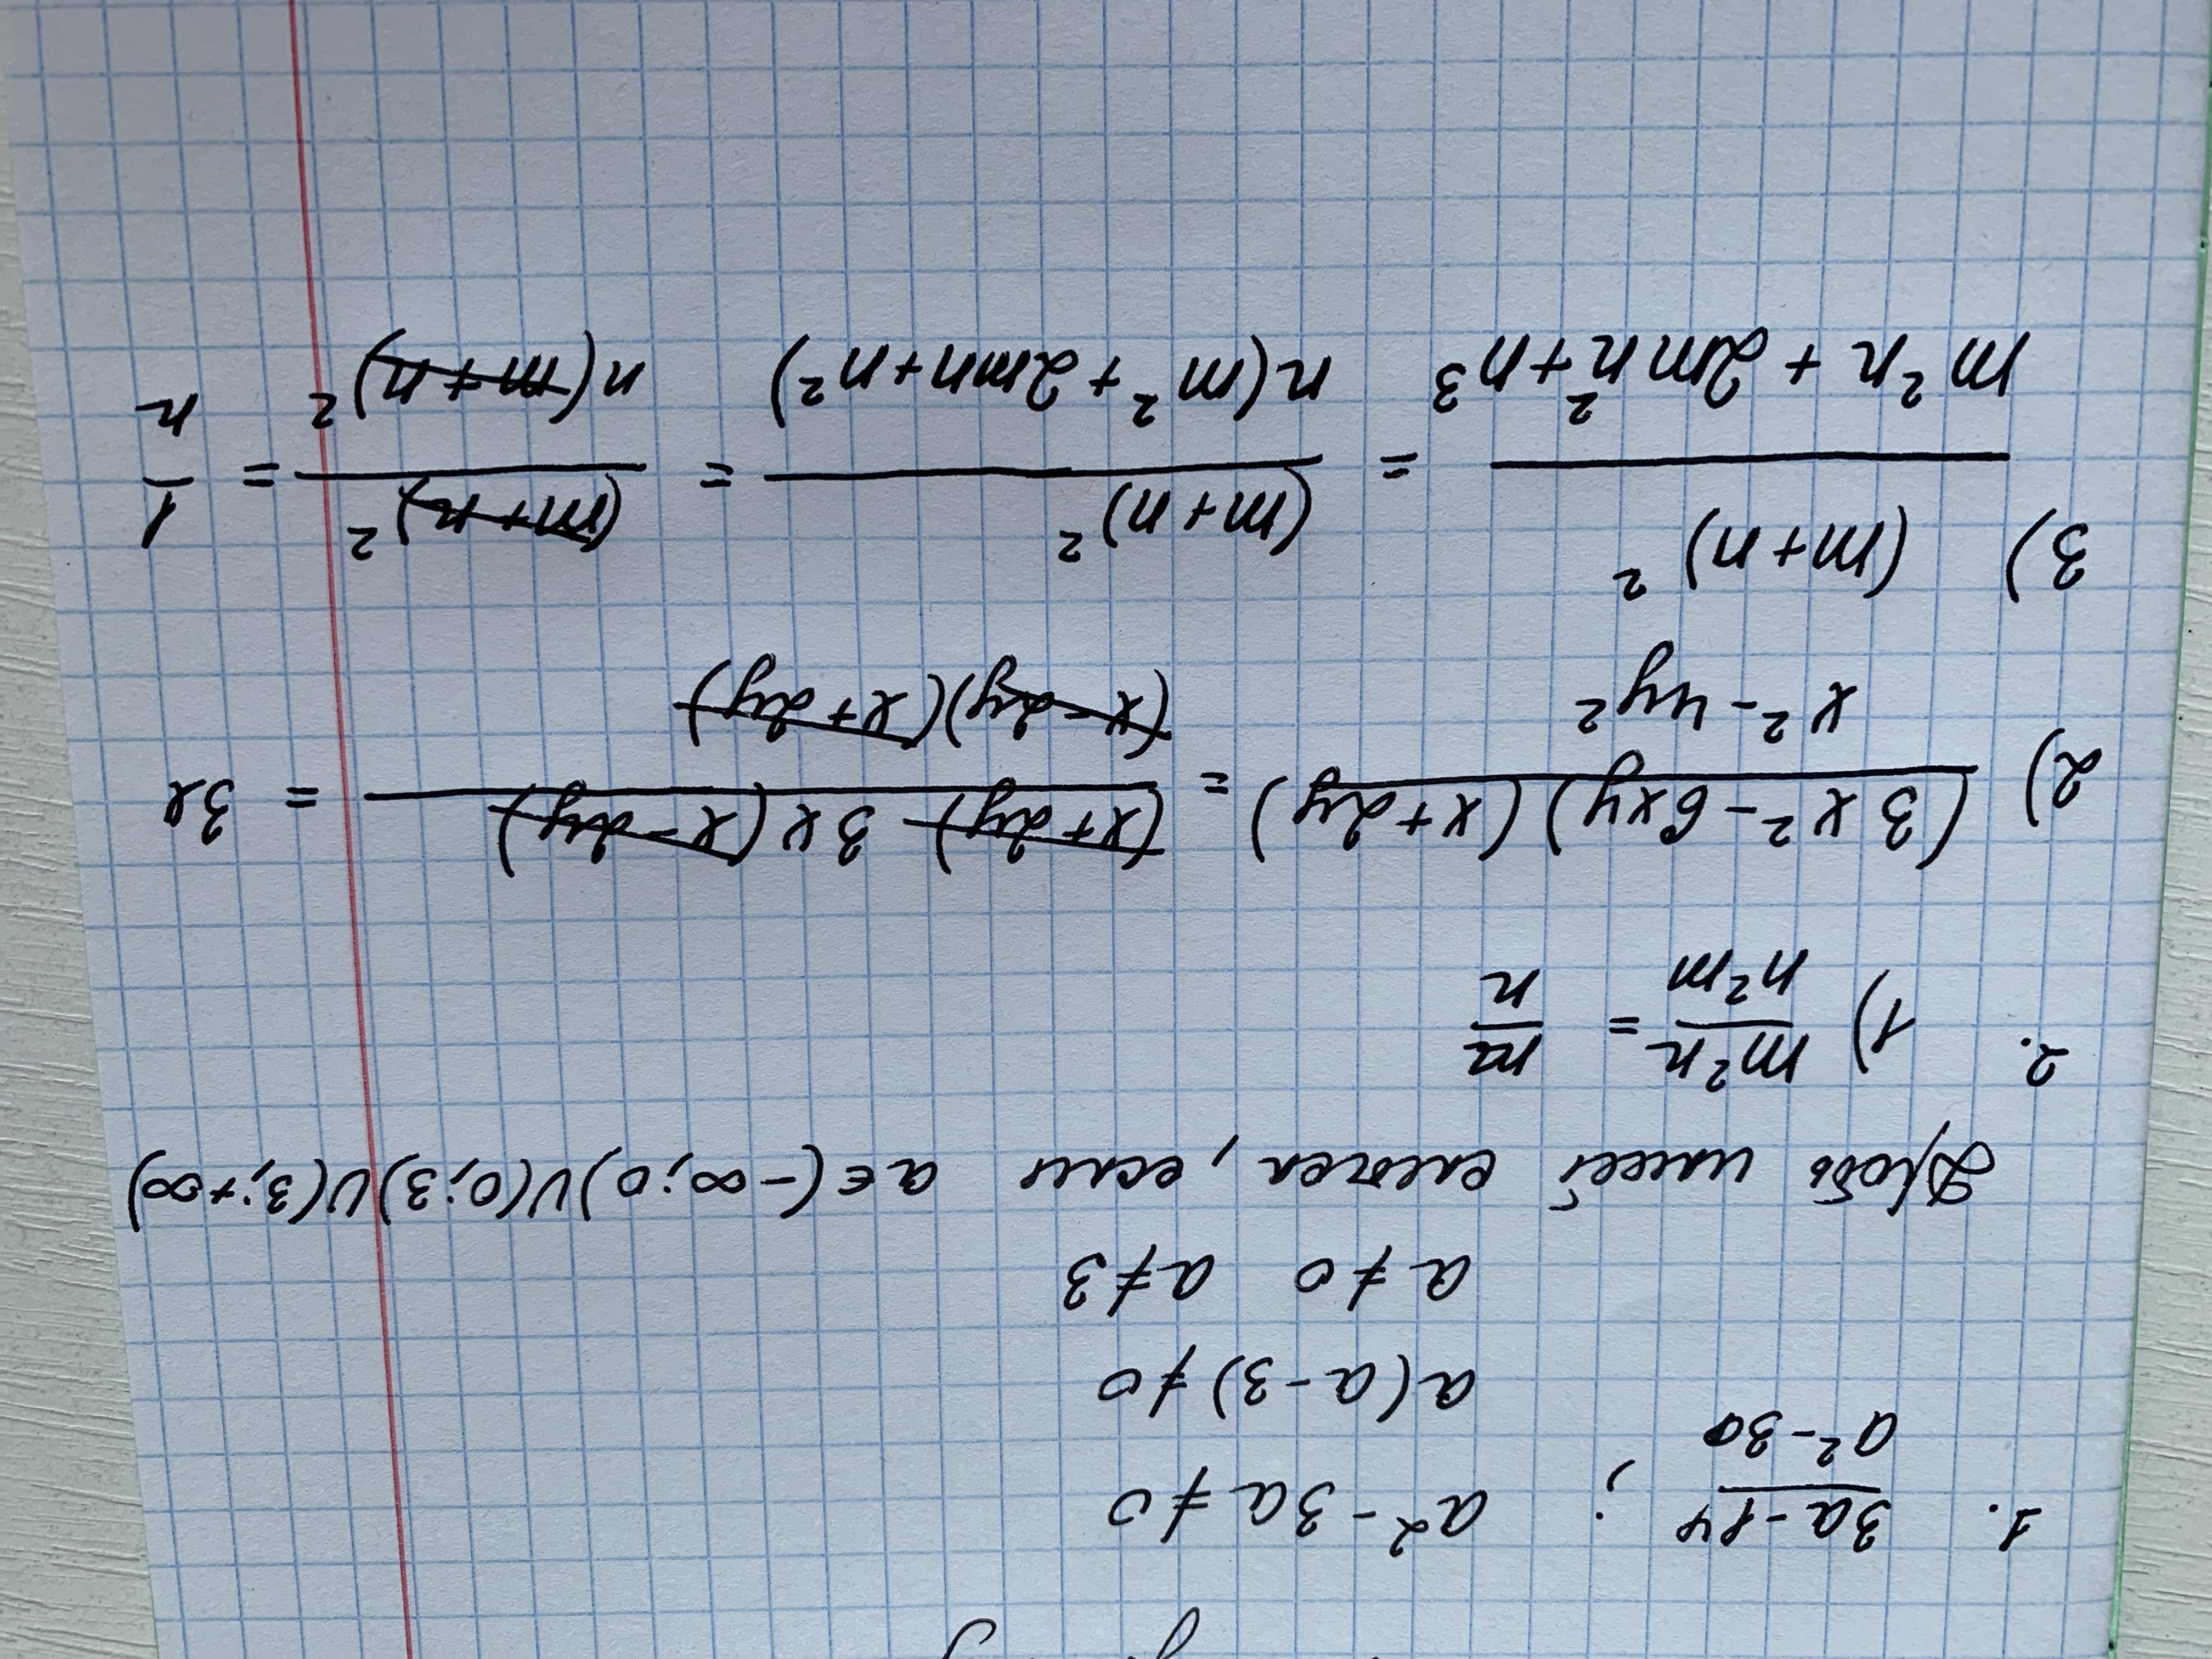 1. (3a-14)/(a²-3a) ; a²-3a≠0
a(a-3)≠0
a≠0 a≠3
Дробь имеет смысл, если a∈(-∞;0)∪(0;3)∪(3;+∞)
2. 1) m²n/n²m = m/n
2) (3x²-6xy)(x+2y)/(x²-4y²) = (x+2y)3x(x-2y)/(x-2y)(x+2y) = 3x
3) (m+n)²/(m²n+2mn²+n³) = (m+n)²/n(m²+2mn+n²) = (m+n)²/n(m+n)² = 1/n